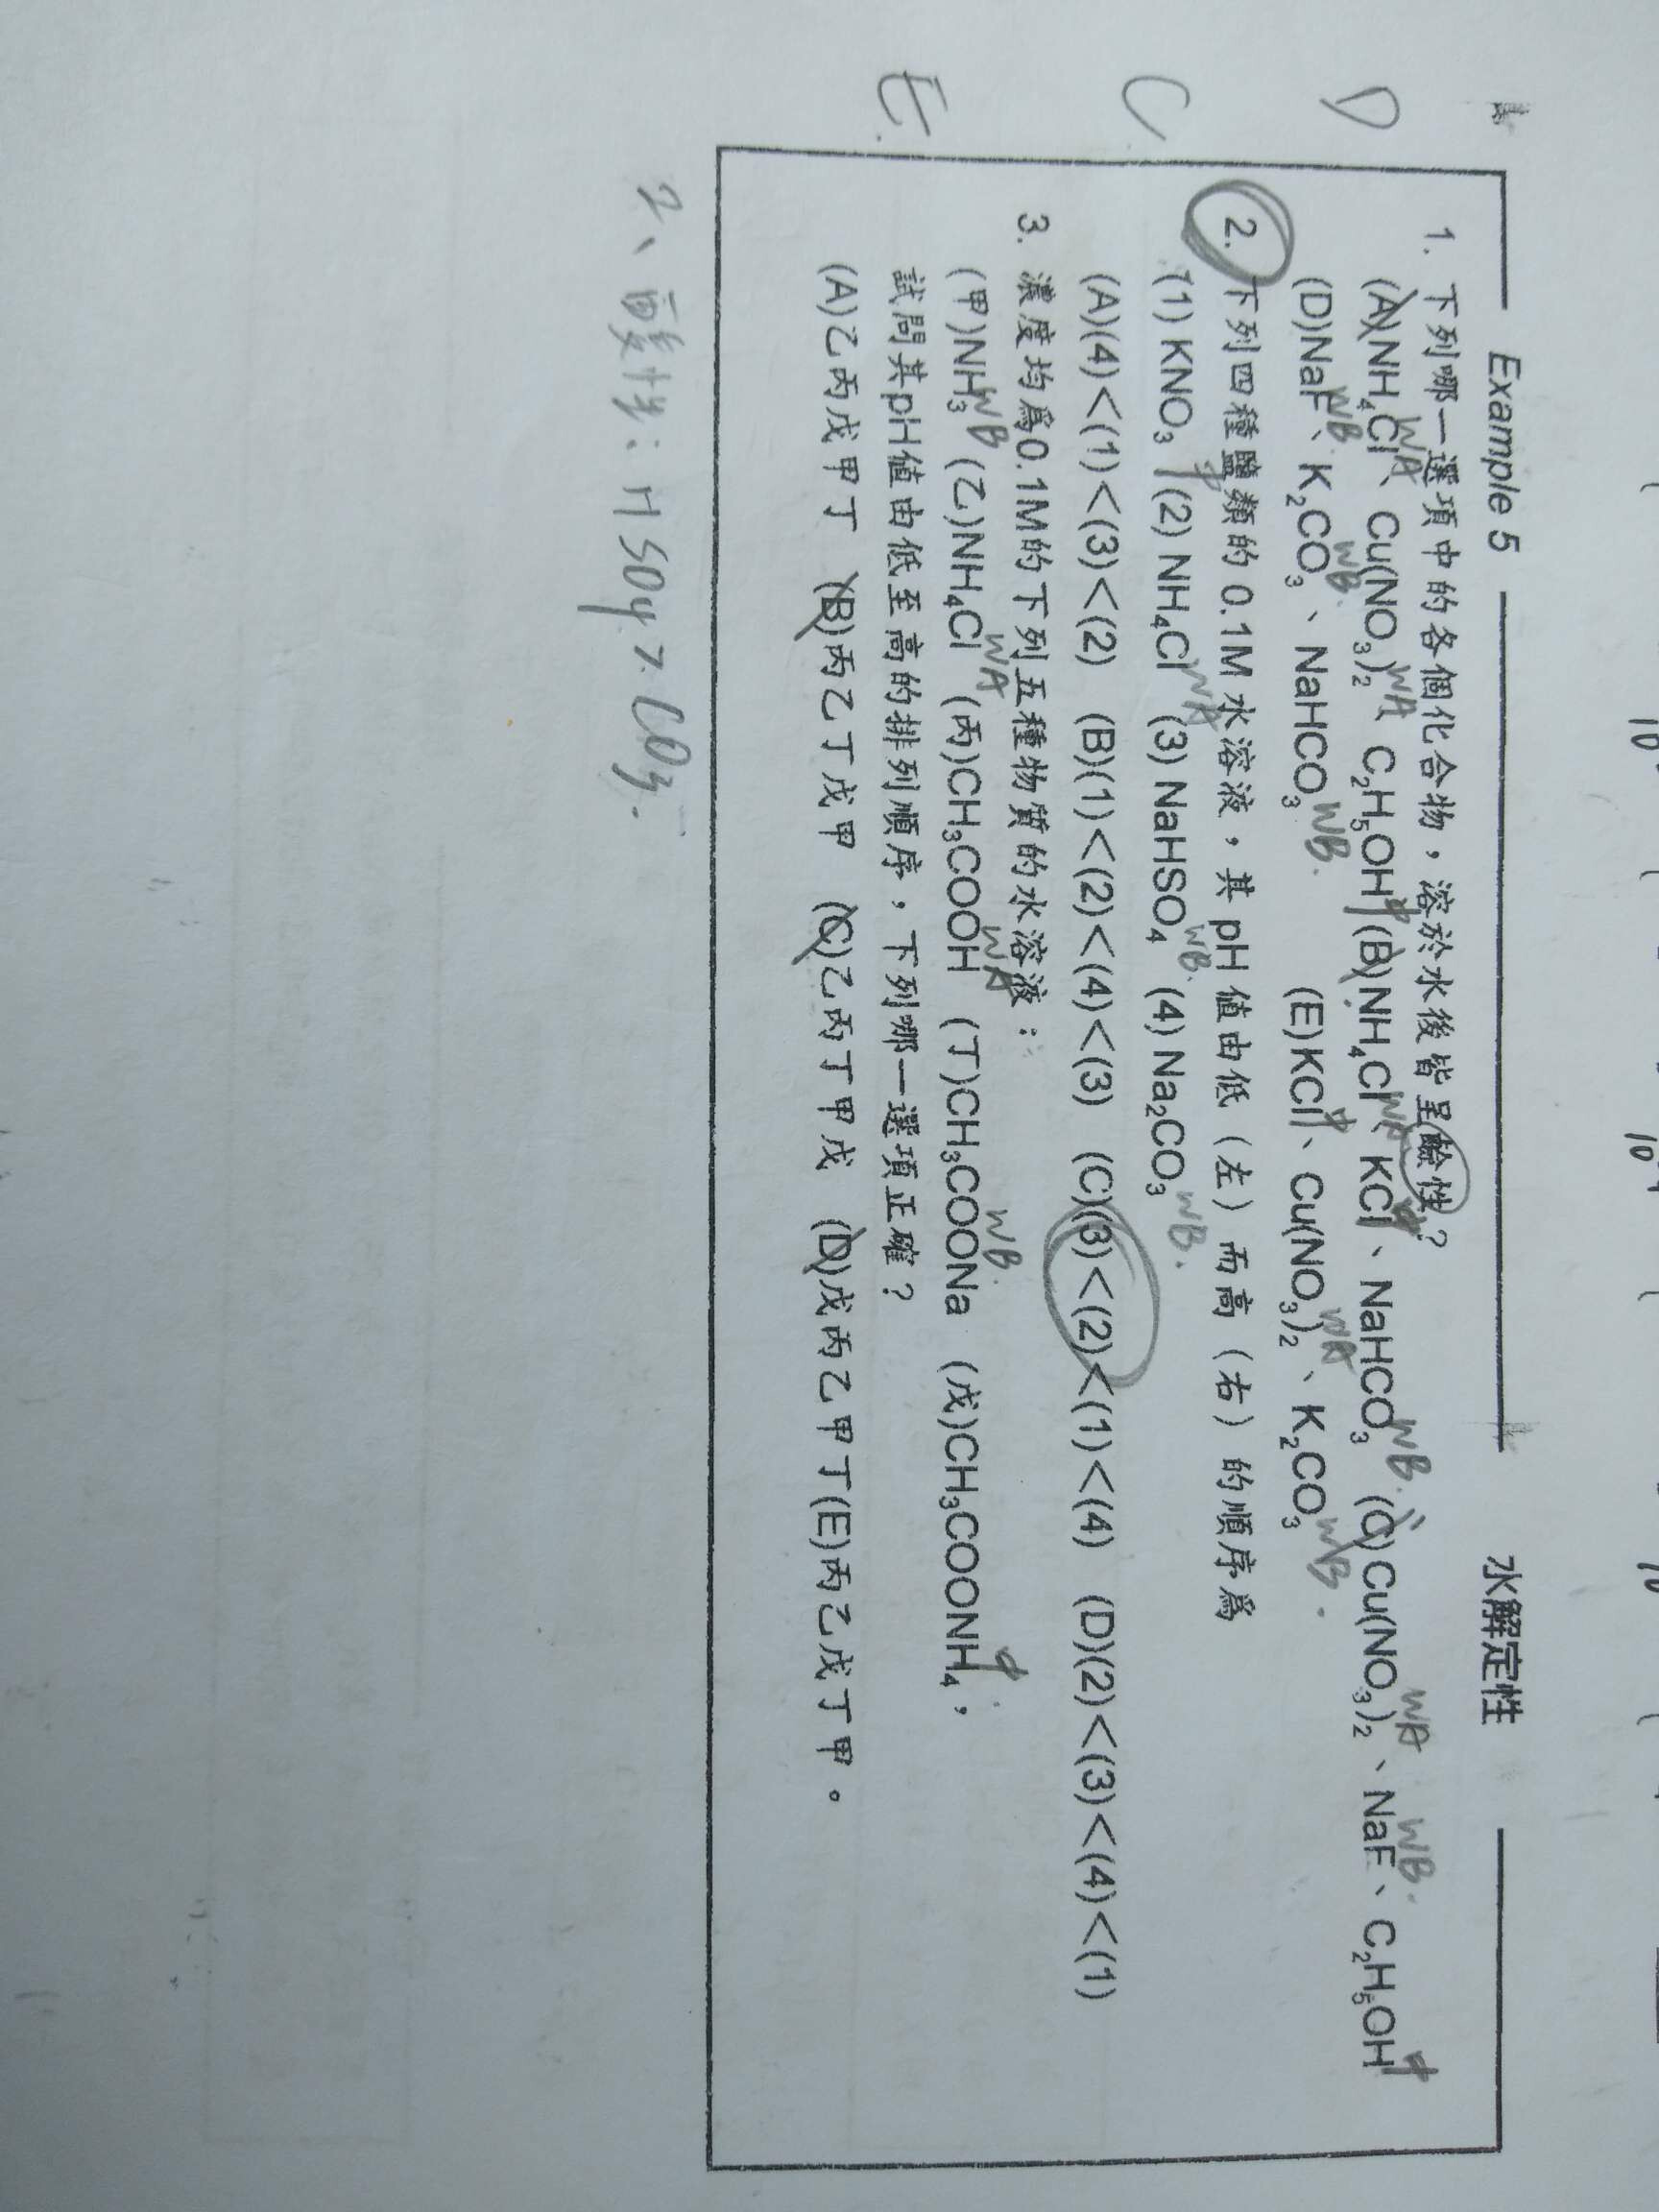 Example 5 水解定性
D 1. 下列哪一選項中的各個化合物，溶於水後皆呈鹼性？
(A)NH₄Cl、Cu(NO₃)₂、C₂H₅OH (B)NH₄Cl、KCl、NaHCO₃ (C)Cu(NO₃)₂、NaF、C₂H₅OH
WA WA 中 WA 中 WB. WA WB. 中
(D)NaF、K₂CO₃、NaHCO₃ (E)KCl、Cu(NO₃)₂、K₂CO₃
WB WB. WB. 中 WA WB.
C 2. 下列四種鹽類的 0.1M 水溶液，其 pH 值由低（左）而高（右）的順序爲
(1) KNO₃ (2) NH₄Cl (3) NaHSO₄ (4) Na₂CO₃
中 WA WB. WB.
(A)(4)<(1)<(3)<(2) (B)(1)<(2)<(4)<(3) (C)(3)<(2)<(1)<(4) (D)(2)<(3)<(4)<(1)
E. 3. 濃度均爲0.1M的下列五種物質的水溶液：
(甲)NH₃ (乙)NH₄Cl (丙)CH₃COOH (丁)CH₃COONa (戊)CH₃COONH₄，
WB WA WA WB. 中.
試問其pH值由低至高的排列順序，下列哪一選項正確？
(A)乙丙戊甲丁 (B)丙乙丁戊甲 (C)乙丙丁甲戊 (D)戊丙乙甲丁(E)丙乙戊丁甲。
2、酸性：HSO₄⁻ > CO₃
10
10
10